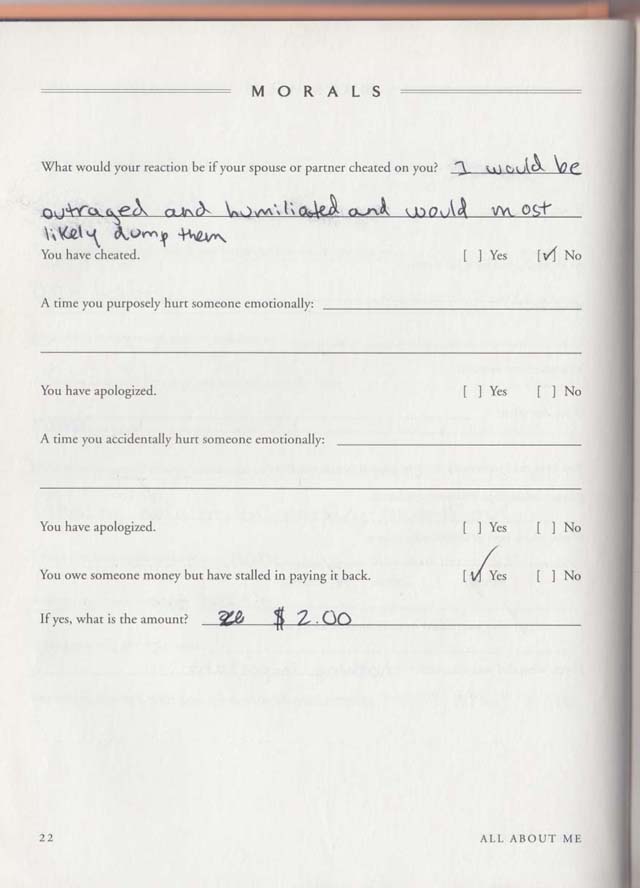 MORALS
What would your reaction be if your spouse or partner cheated on you? I would be
outraged and humiliated and would most
likely dump them
You have cheated. [ ] Yes [✓] No
A time you purposely hurt someone emotionally:
You have apologized. [ ] Yes [ ] No
A time you accidentally hurt someone emotionally:
You have apologized. [ ] Yes [ ] No
You owe someone money but have stalled in paying it back. [✓] Yes [ ] No
If yes, what is the amount? $2.00
22 ALL ABOUT ME